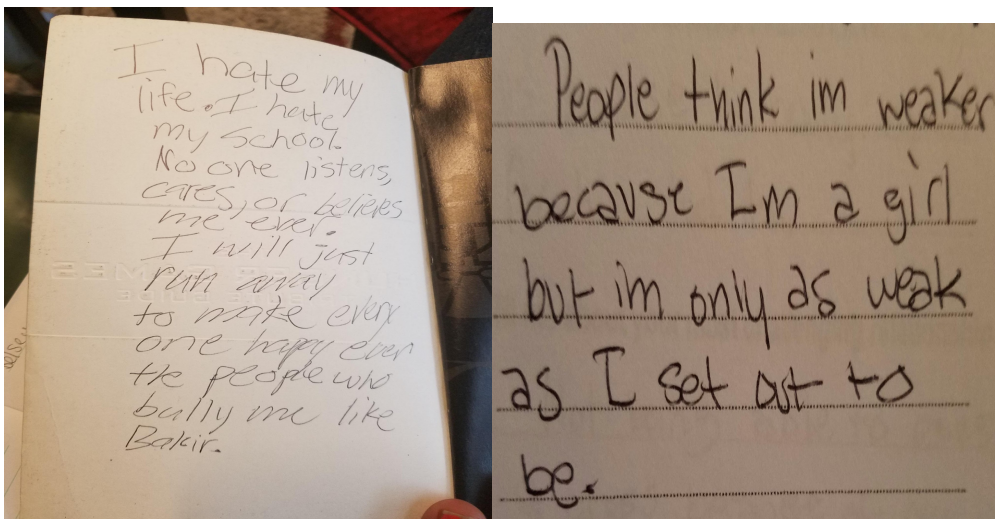 I hate my
life. I hate
my school.
No one listens,
cares, or believes
me ever.
I will just
run away
to make every
one happy even
the people who
bully me like
Bakir.
People think im weaker
because I'm a girl
but im only as weak
as I set out to
be.